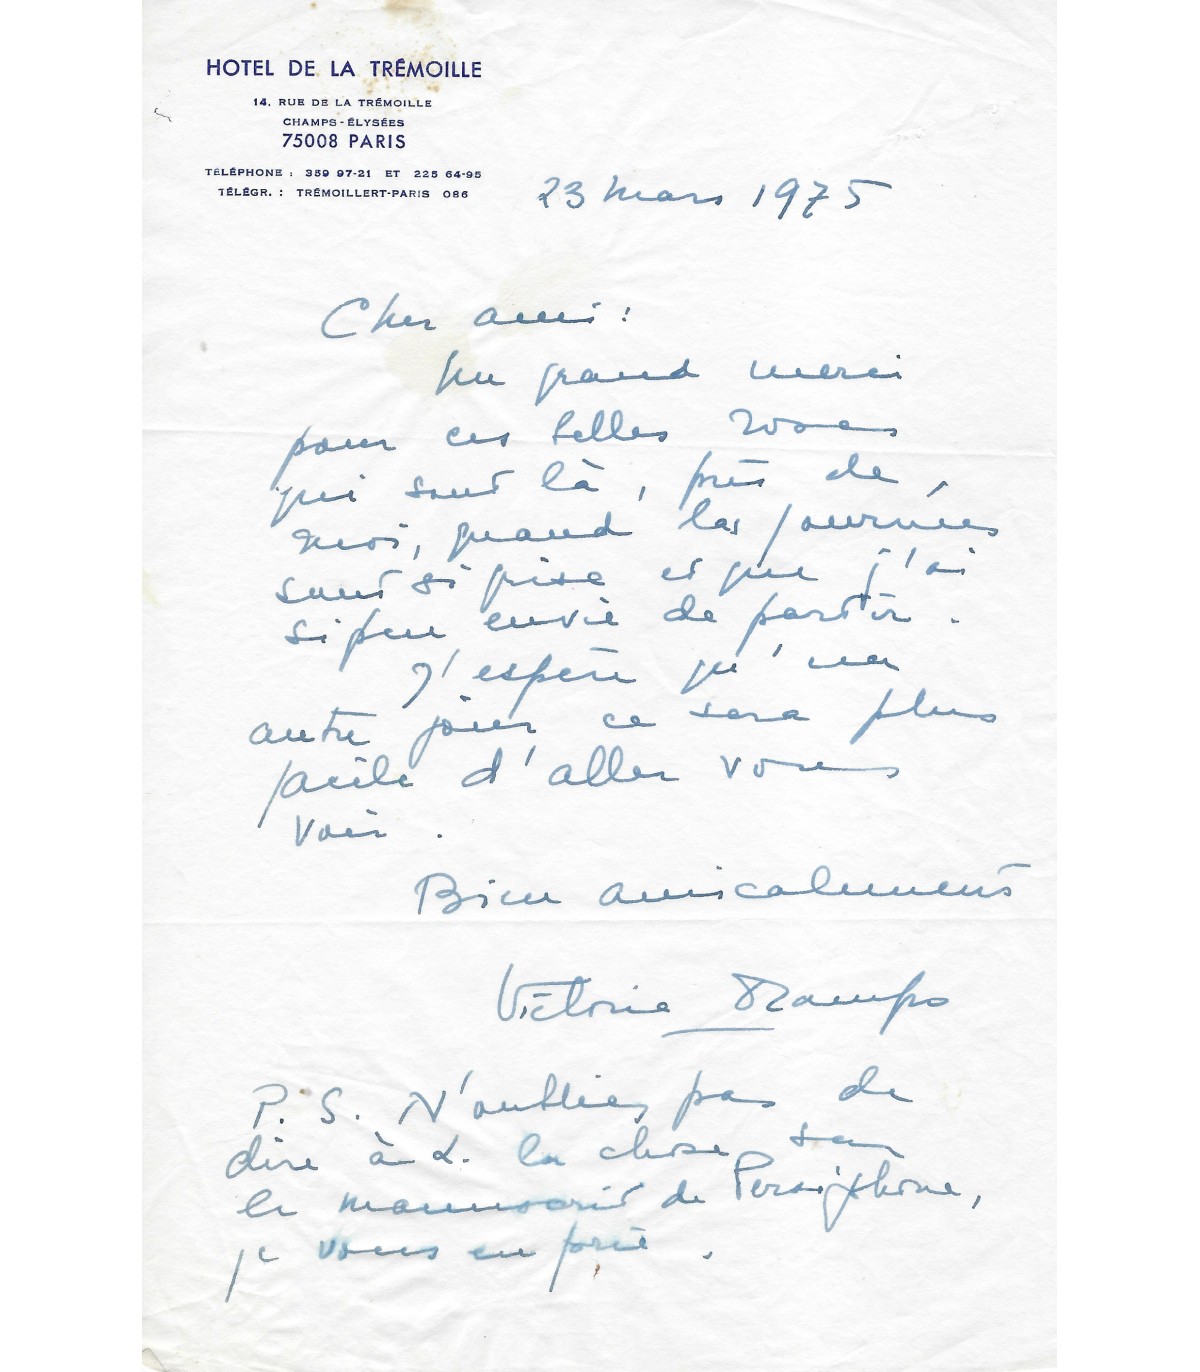 HOTEL DE LA TRÉMOILLE
14, RUE DE LA TRÉMOILLE
CHAMPS-ÉLYSÉES
75008 PARIS
TÉLÉPHONE : 359 97-21 ET 225 64-95
TÉLÉGR. : TRÉMOILLERT-PARIS 086
23 mars 1975
Cher ami :
Un grand merci
pour ces belles roses
qui sont là, près de
moi, quand les journées
sont si grise et que j'ai
si peu envie de partir.
J'espère qu'un
autre jour ce sera plus
facile d'aller vous
voir.
Bien amicalement
Victoria Ocampo
P. S. N'oubliez pas de
dire à L. la chose sur
le manuscrit de Perséphone,
je vous en prie.